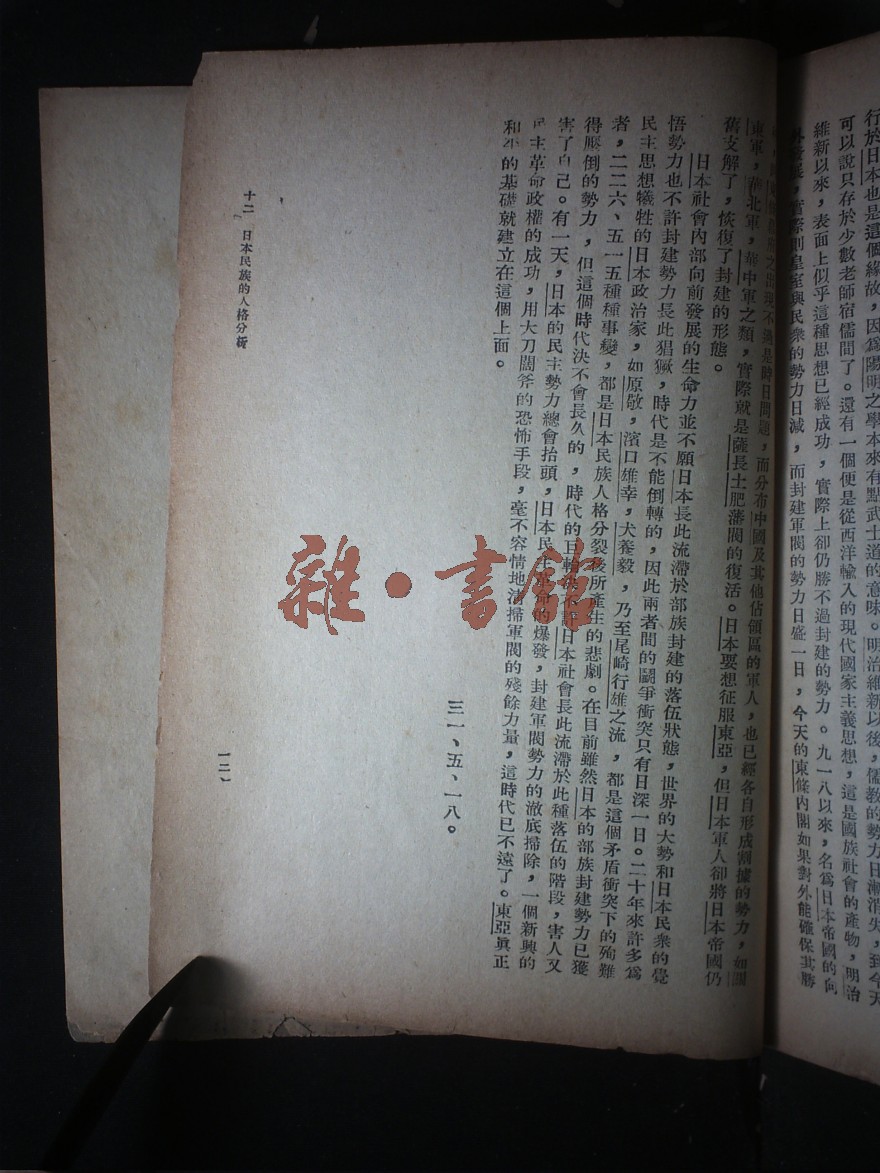 行於日本也是這個緣故，因爲陽明之學本來有點武士道的意味。明治維新以後，儒教的勢力日漸消失，到今天
可以說只存於少數老師宿儒間了。還有一個便是從西洋輸入的現代國家主義思想，這是國族社會的產物，明治
維新以來，表面上似乎這種思想已經成功，實際上卻仍勝不過封建的勢力。九一八以來，名爲日本帝國的向
外發展，實際則皇室與民衆的勢力日減，而封建軍閥的勢力日盛一日，今天的東條內閣如果對外能確保其勝
之出現不過是時日問題，而分布中國及其他佔領區的軍人，也已經各自形成割據的勢力，如關
東軍，華北軍，華中軍之類，實際就是薩長土肥藩閥的復活。日本要想征服東亞，但日本軍人卻將日本帝國仍
舊支解了，恢復了封建的形態。
日本社會內部向前發展的生命力並不願日本長此流滯於部族封建的落伍狀態，世界的大勢和日本民衆的覺
悟勢力也不許封建勢力長此猖獗，時代是不能倒轉的，因此兩者間的鬭爭衝突只有日深一日。二十年來許多爲
民主思想犧牲的日本政治家，如原敬，濱口雄幸，犬養毅，乃至尾崎行雄之流，都是這個矛盾衝突下的殉難
者，二二六、五一五種種事變，都是日本民族人格分裂後所產生的悲劇。在目前雖然日本的部族封建勢力已獲
得壓倒的勢力，但這個時代決不會長久的，時代的巨輪決不許日本社會長此流滯於此種落伍的階段，害人又
害了自己。有一天，日本的民主勢力總會抬頭，日本民主革命的爆發，封建軍閥勢力的澈底掃除，一個新興的
民主革命政權的成功，用大刀闊斧的恐怖手段，毫不容情地清掃軍閥的殘餘力量，這時代已不遠了。東亞眞正
和平的基礎就建立在這個上面。
三一、五、一八。
十二 日本民族的人格分析
一二
雜·書館